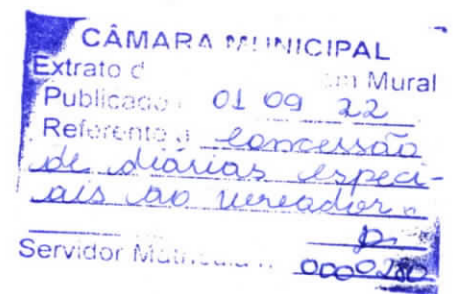 CÂMARA MUNICIPAL
Extrato Mural
Publicado 01 09 22
Referente a concessão
de diarias especi-
ais ao vereador
Servidor Matrícula 0000280